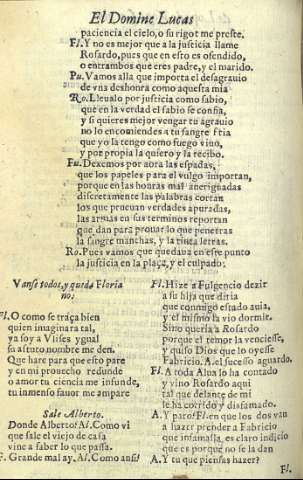 El Domine Lucas
paciencia el cielo, o su rigor me preste.
Fl. Y no es mejor que a la justicia llame
Rosardo, pues que en esto es ofendido,
o entrambos que eres padre, y el marido.
Fu. Vamos alla que importa el desagrauio
de vna deshonra como aquesta mia
Ro. Lleualo por justicia como sabio,
que en la verdad el sabio se confia,
y si quieres mejor vengar tu agrauio
no lo encomiendes a tu sangre fria
que yo la tengo como fuego viuo,
y por propia la quiero y la recibo.
Fu. Dexemos por aora las espadas,
que los papeles para el vulgo importan,
porque en las honras mal aueriguadas
discretamente las palabras cortan
los que prueuan verdades apuradas,
las armas en sus terminos reportan
que dan para prouar lo que penetras
la sangre manchas, y la tinta letras.
Ro. Pues vamos que quedaua en este punto
la justicia en la plaça, y el culpado.
Vanse todos, y queda Floria
no.
Fl. O como se traça bien
quien imaginara tal,
ya soy a Vlises ygual
su astuto nombre me den.
Que hare para que esto pare
y en mi prouecho redunde
o amor tu ciencia me infunde,
tu inmenso fauor me ampare
Sale Alberto.
Donde Alberto? Al. Como vi
que sale el viejo de casa
vine a saber lo que passa.
F. Grande mal ay. Al. Como ansi?
Fl. Hize a Fulgencio dezir
a su hija que diria
que conmigo estado auia,
y el mismo la vio dormir.
Sino queria a Rosardo
porque el temor la venciesse,
y quiso Dios que lo oyesse
Fabricio. A. el sucesso aguardo.
Fl. A toda Alua lo ha contado
y vino Rosardo aqui
tal que delante de mi
le ha corrido y disfamado.
A. Y paro? Fl. en que los dos van
a hazer prender a Fabricio
que infamalla, es claro indicio
que es porque no se la dan
A. Y tu que piensas hazer?
Fl.